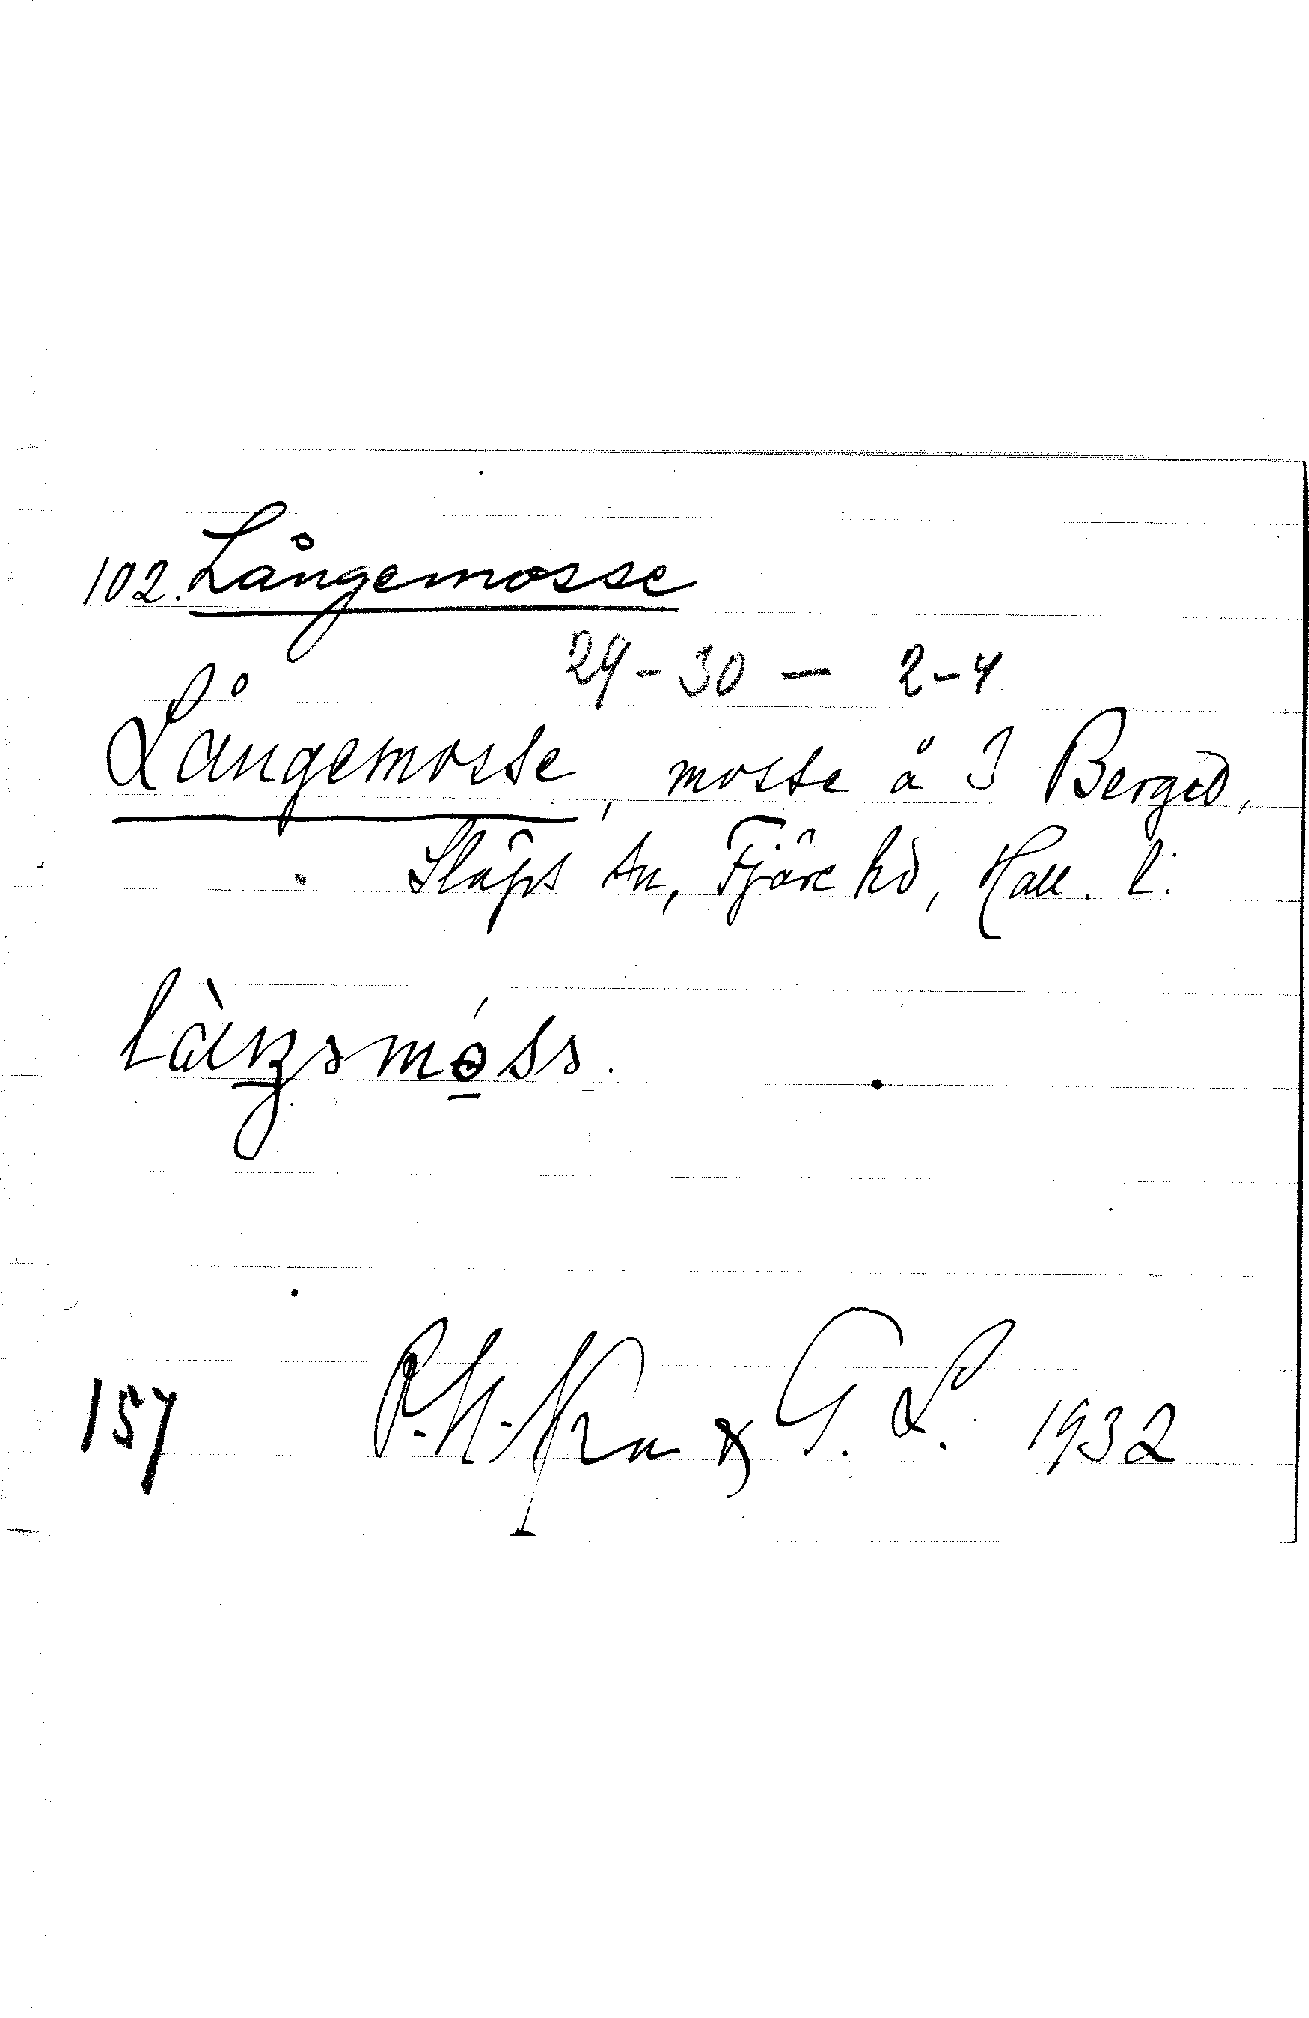 102. Långemosse
29-30 - 2-4
Långemosse, mosse å 3 Berged,
Släps sn, Fjäre hd, Hall. l.
157 P.N. & G. L. 1932